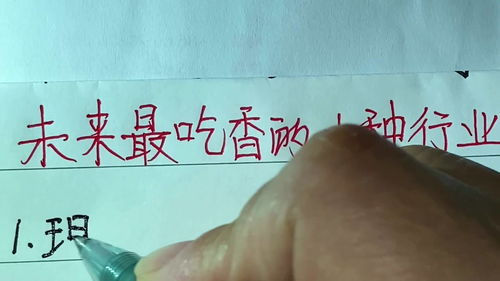 未来最吃香的种行业
1.